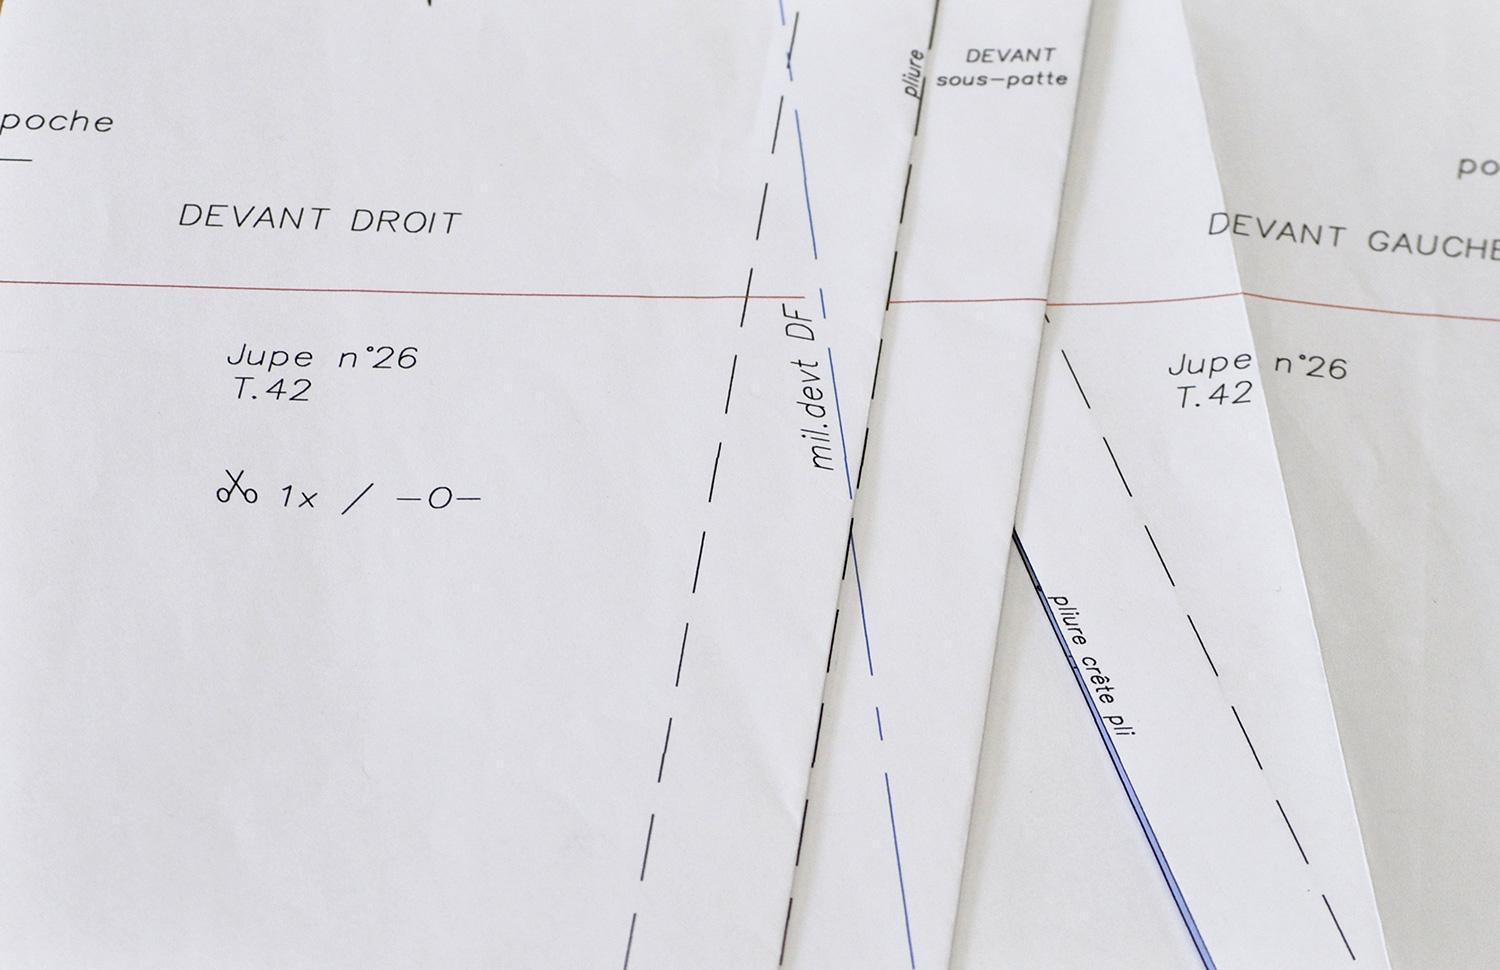 poche
DEVANT DROIT
Jupe n°26
T.42
1x / —0—
mil.devt DF
pliure
DEVANT
sous-patte
pliure crête pli
po
DEVANT GAUCHE
Jupe n°26
T.42